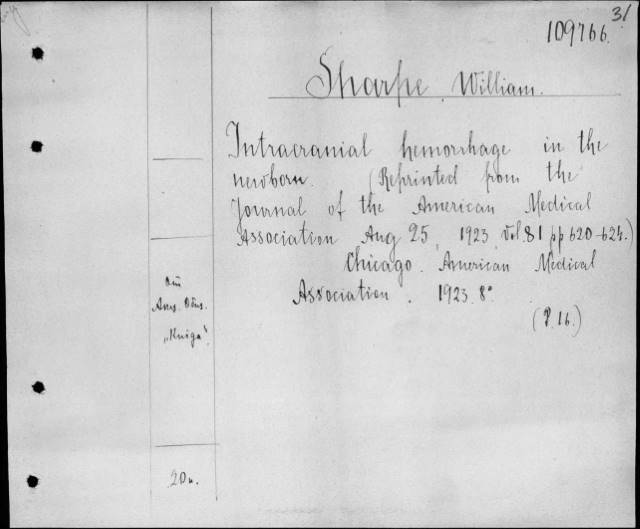 31
109766.
Sharpe, William.
Intracranial hemorrhage in the
newborn. (Reprinted from the
Journal of the American Medical
Association Aug 25, 1923, Vol. 81 pp 620-624.)
Chicago. American Medical
Association. 1923. 8°
(P. 16.)
„Kniga"
20